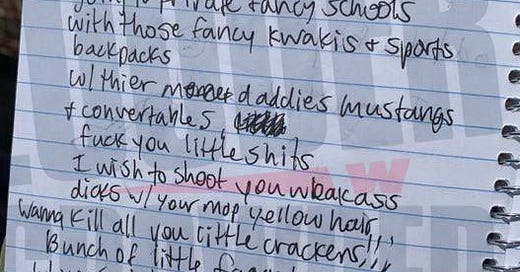 to private fancy schools
with those fancy kwakis & sports
backpacks
w/ thier daddies mustangs
& convertables
fuck you little shits
I wish to shoot you weakass
dicks w/ your mop yellow hair,
wanna kill all you little crackers!!!
Bunch of little